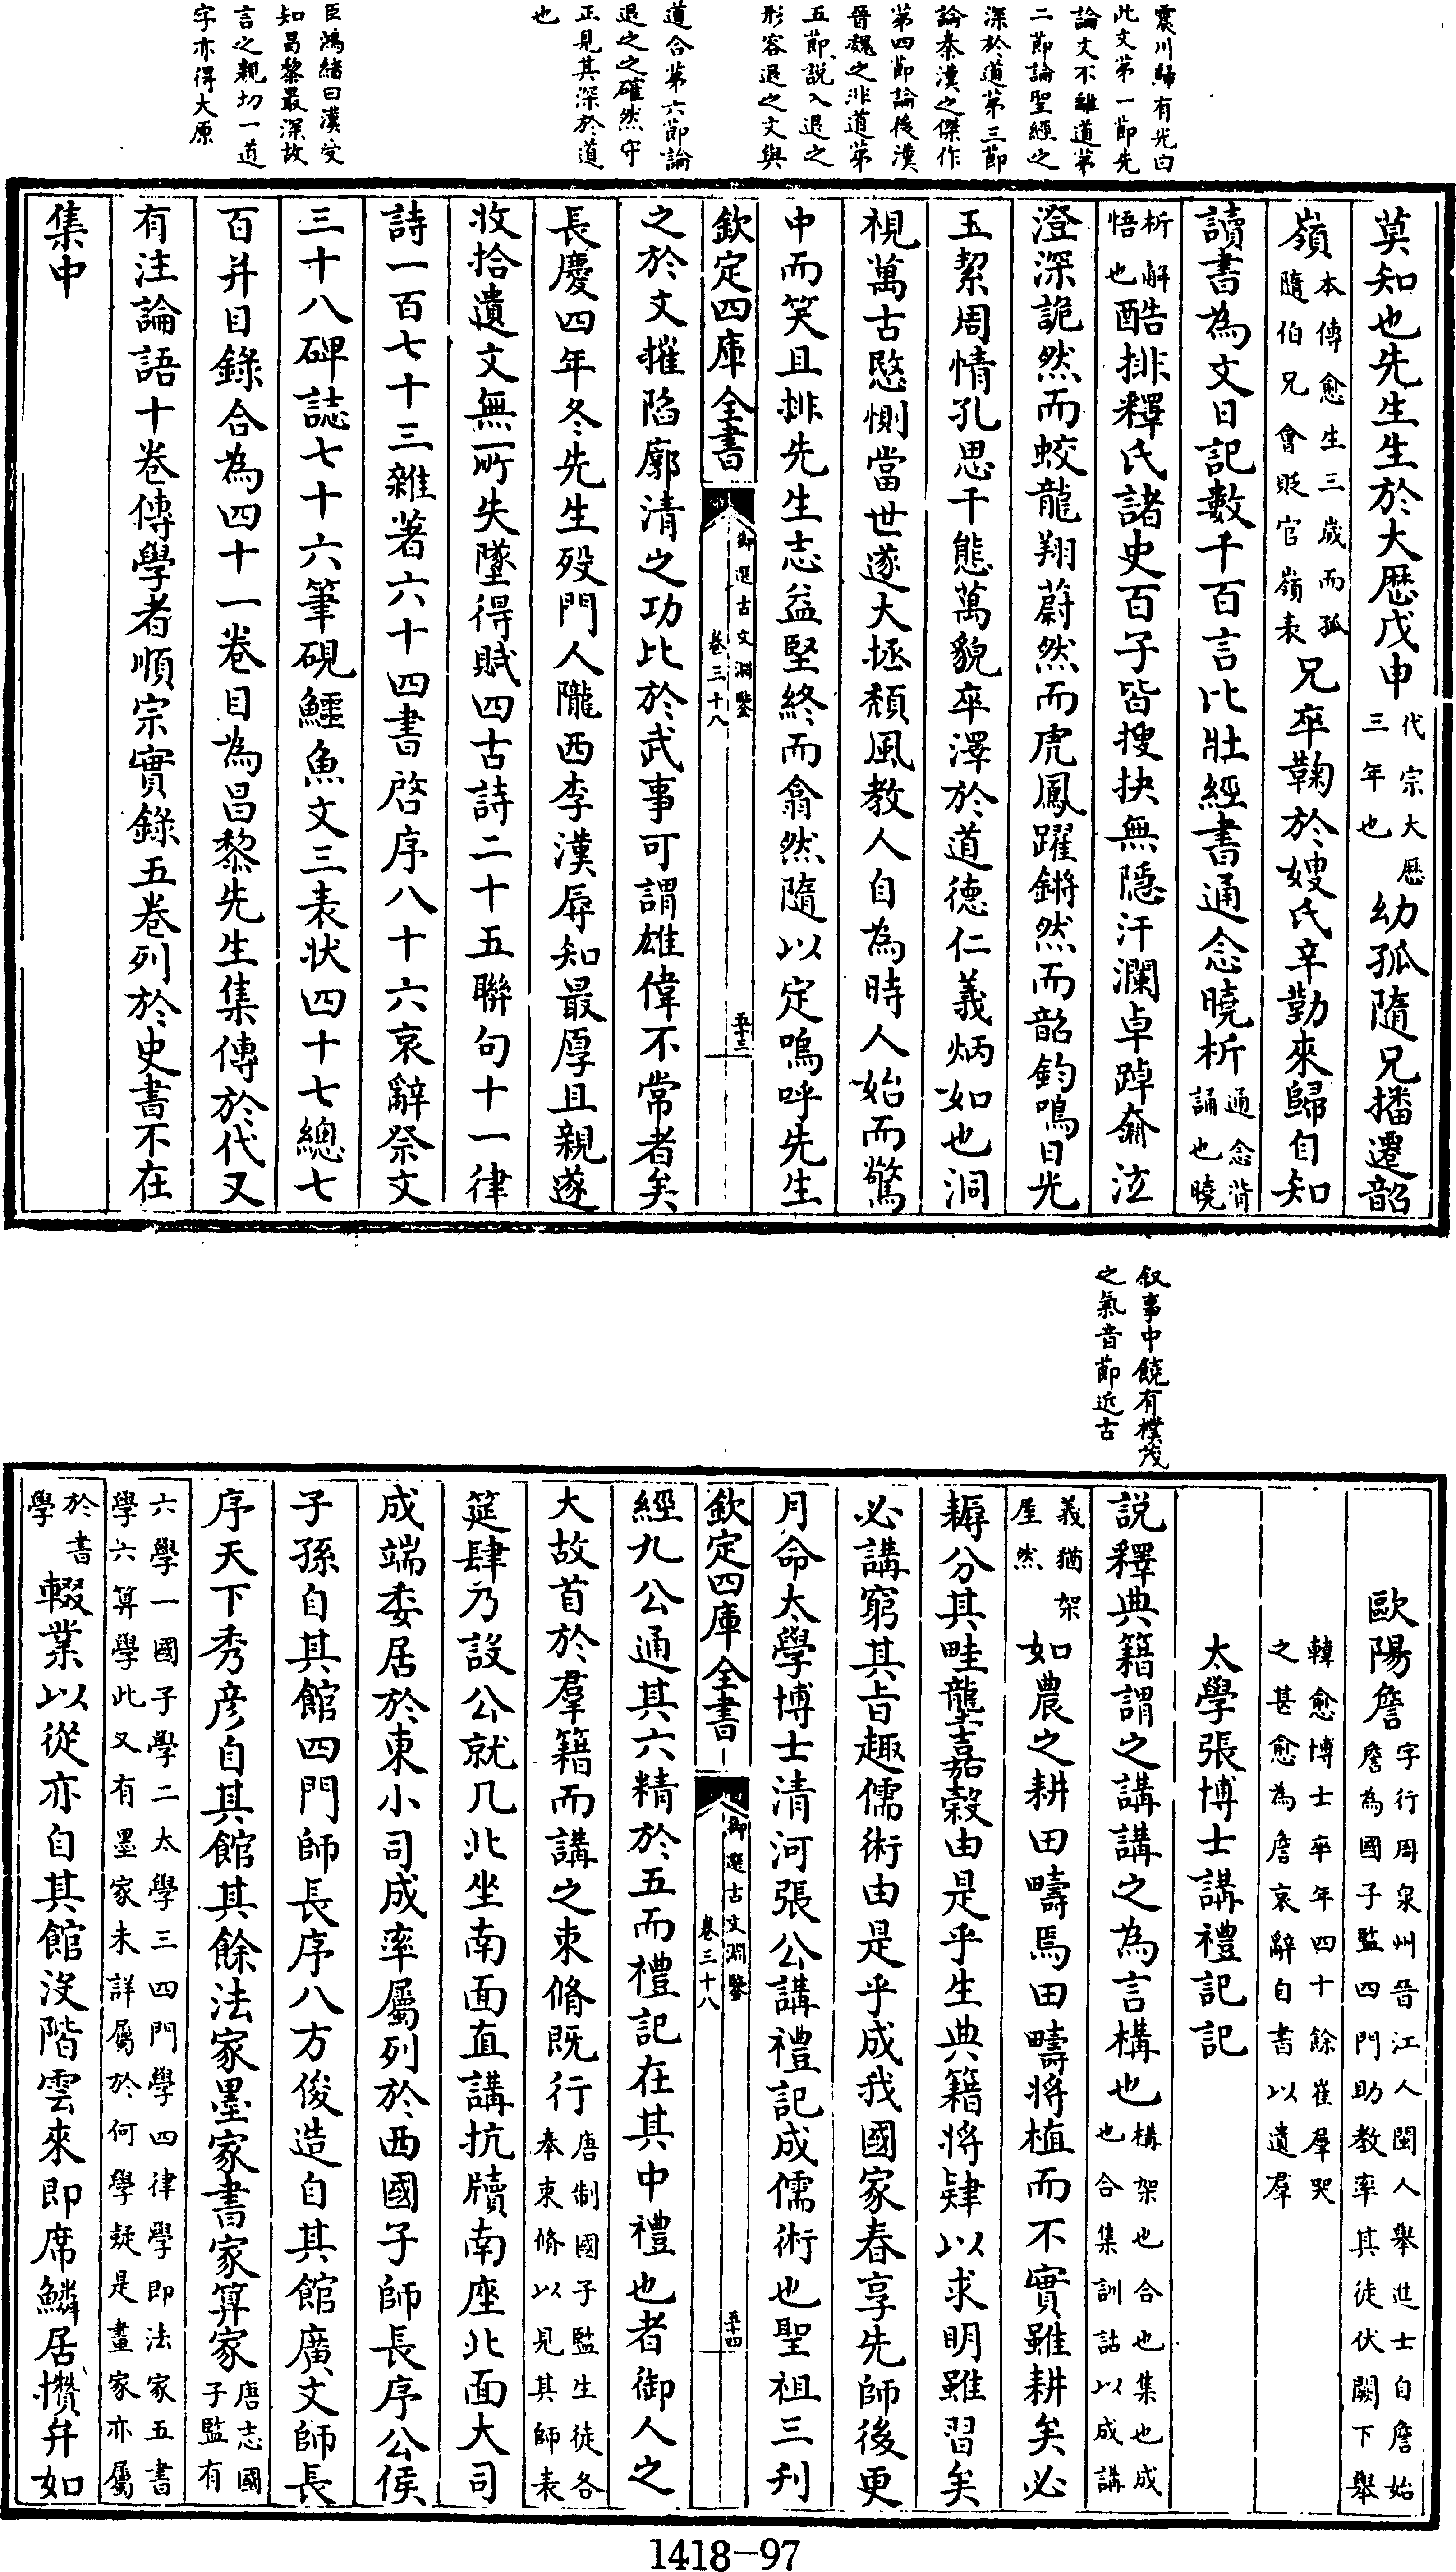 震川歸有光曰
此文第一節先
論文不離道第
二節論聖經之
深於道第三節
論秦漢之傑作
第四節論後漢
晉魏之非道第
五節說入退之
形容退之文與
道合第六節論
退之之確然守
正見其深於道
也
臣鴻緒曰漢受
知昌黎最深故
言之親切一道
字亦得大原
莫知也先生生於大厯戊申代宗大厯三年也幼孤隨兄播遷韶
嶺本傳愈生三歲而孤隨伯兄會貶官嶺表兄卒鞠於嫂氏辛勤來歸自知
讀書為文日記數千百言比壯經書通念曉析通念背誦也曉
析解悟也酷排釋氏諸史百子皆搜抉無隱汗瀾卓踔奫泫
澄深詭然而蛟龍翔蔚然而虎鳳躍鏘然而韶鈞鳴日光
玉絜周情孔思千態萬貌卒澤於道德仁義炳如也洞
視萬古愍惻當世遂大拯頹風教人自為時人始而驚
中而笑且排先生志益堅終而翕然隨以定嗚呼先生
欽定四庫全書 御選古文淵鑒 卷三十八 五十三
之於文摧陷廓清之功比於武事可謂雄偉不常者矣
長慶四年冬先生歿門人隴西李漢辱知最厚且親遂
收拾遺文無所失墜得賦四古詩二十五聯句十一律
詩一百七十三雜著六十四書啓序八十六哀辭祭文
三十八碑誌七十六筆硯鱷魚文三表狀四十七總七
百并目錄合為四十一卷目為昌黎先生集傳於代又
有注論語十卷傳學者順宗實錄五卷列於史書不在
集中
叙事中饒有樸茂
之氣音節近古
歐陽詹字行周泉州晉江人閩人舉進士自詹始詹為國子監四門助教率其徒伏闕下舉
韓愈博士卒年四十餘崔羣哭之甚愈為詹哀辭自書以遺羣
太學張博士講禮記記
說釋典籍謂之講講之為言構也構架也合也集也成也合集訓詁以成講
義猶架屋然如農之耕田疇焉田疇將植而不實雖耕矣必
耨分其畦壟嘉穀由是乎生典籍將肄以求明雖習矣
必講窮其旨趣儒術由是乎成我國家春享先師後更
月命太學博士清河張公講禮記成儒術也聖祖三刋
欽定四庫全書 御選古文淵鑒 卷三十八 五十四
經九公通其六精於五而禮記在其中禮也者御人之
大故首於羣籍而講之束脩既行唐制國子監生徒各奉束脩以見其師表
筵肆乃設公就几北坐南面直講抗牘南座北面大司
成端委居於東小司成率屬列於西國子師長序公侯
子孫自其館四門師長序八方俊造自其館廣文師長
序天下秀彥自其館其餘法家墨家書家算家唐志國子監有
六學一國子學二太學三四門學四律學即法家五書學六算學此又有墨家未詳屬於何學疑是畫家亦屬
於書學輟業以從亦自其館沒階雲來即席鱗居攢弁如
1418-97